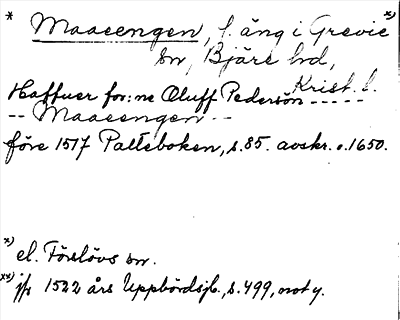 * Maaeengen, f. äng i Grevie *)
sn, Bjäre hd,
Krist. l.
Haffuer for:ne Oluff Pedersön -----
-- Maaeengen --
före 1517 Palteboken, s.85. avskr. o.1650.
*) el. Förslövs sn.
**) jfr 1522 års Uppbördsjb., s.499, not y.